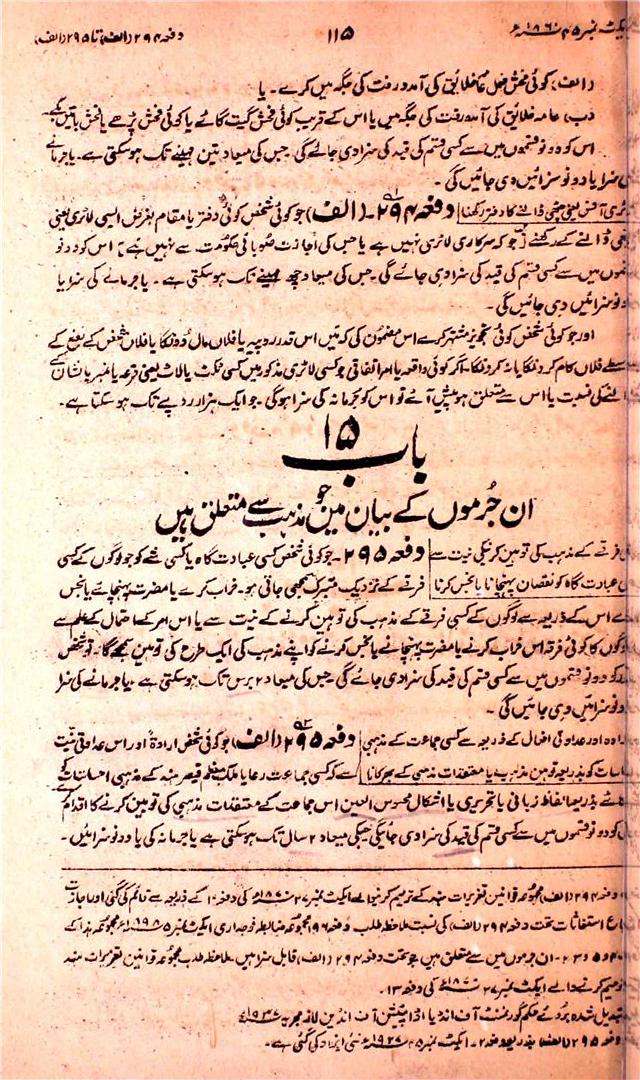 ایکٹ نمبر ۴۵ ۱۸۶۰ء
۱۱۵
دفعہ ۲۹۴ (الف) تا ۲۹۵ (الف)
(الف) کوئی فحش فعل عام خلائق کی آمد و رفت کی جگہ میں کرے۔ یا
(ب) عامہ خلائق کی آمد و رفت کی جگہ میں یا اس کے قریب کوئی فحش گیت گائے یا کوئی فحش پڑھے یا فحش باتیں بکے
اس کو دونو قسموں میں سے کسی قسم کی قید کی سزا دی جائے گی۔ جس کی میعاد تین مہینے تک ہو سکتی ہے۔ یا جرمانے
کی سزا یا دونو سزائیں دی جائیں گی۔
لاٹری آفس یعنی چٹھی ڈالنے کا دفتر رکھنا دفعہ ۲۹۴۔ (الف) جو کوئی شخص کوئی دفتر یا مقام بغرض ایسی لاٹری یعنی
چٹھی ڈالنے کے رکھے جو کہ سرکاری لاٹری نہیں ہے یا جس کی اجازت صوبائی حکومت سے نہیں ہے اس کو دونو
قسموں میں سے کسی قسم کی قید کی سزا دی جائے گی۔ جس کی میعاد چھ مہینے تک ہو سکتی ہے۔ یا جرمانے کی سزا یا
دونو سزائیں دی جائیں گی۔
اور جو کوئی شخص کوئی تجویز مشتہر کرے اس مضمون کی کہ میں اس قدر روپیہ یا فلاں مال دونگا یا فلاں شخص کے نفع کے
واسطے فلاں کام کرونگا یا نہ کرونگا۔ اگر کوئی واقعہ یا امر اتفاقی جو کسی لاٹری مذکور میں کسی ٹکٹ یا لاٹ یعنی قرعہ یا نمبر یا نشان کے
نکلنے کی نسبت یا اس سے متعلق ہو پیش آئے تو اس کو جرمانہ کی سزا ہوگی۔ جو ایک ہزار روپے تک ہو سکتا ہے۔
باب ۱۵
ان جُرموں کے بیان میں جو مذہب سے متعلق ہیں
کسی فرقے کے مذہب کی توہین کرنیکی نیت سے دفعہ ۲۹۵۔ جو کوئی شخص کسی عبادت گاہ یا کسی شے کو جو لوگوں کے کسی
کسی عبادت گاہ کو نقصان پہنچانا یا نجس کرنا فرقے کے نزدیک متبرک سمجھی جاتی ہو۔ خراب کرے یا مضرت پہنچائے یا نجس
کرے اس کے ذریعہ سے لوگوں کے کسی فرقے کے مذہب کی توہین کرنے کے نیت سے یا اس امر کے احتمال کے علم سے
لوگوں کا کوئی فرقہ اس خراب کرنے یا مضرت پہنچانے یا نجس کرنے کو اپنے مذہب کی ایک طرح کی توہین سمجھے گا۔ تو شخص
مذکور کو دونو قسموں میں سے کسی قسم کی قید کی سزا دی جائے گی۔ جس کی میعاد ۲ برس تک ہو سکتی ہے۔ یا جرمانے کی سزا
دونو سزائیں دی جائیں گی۔
ارادہ اور عداوتی افعال کے ذریعہ سے کسی جماعت کے مذہبی دفعہ ۲۹۵ (الف) جو کوئی شخص ارادۃً اور اس عداوتی نیت
احساسات کو بذریعہ توہین مذہب یا معتقدات مذہبی کے بھڑکانا سے کہ کسی جماعت رعایا ملک معظم قیصر ہند کے مذہبی احساسات کے
بذریعہ الفاظ زبانی یا تحریری یا اشکال محسوس العین اس جماعت کے معتقدات مذہبی کی توہین کرنے کا اقدام
کو دونو قسموں میں سے کسی قسم کی قید کی سزا دی جائیگی جسکی میعاد ۲ سال تک ہو سکتی ہے یا جرمانہ کی یا دونو سزائیں۔
دفعہ ۲۹۴ (الف) مجموعہ قوانین تعزیرات ہند کے ترمیم کرنیوالے ایکٹ نمبر ۲۷ ۱۸۷۰ء کی دفعہ ۱۰ کے ذریعہ سے قائم کی گئی اور اجازت
استغاثات تحت دفعہ ۲۹۴ (الف) کی نسبت ملاحظہ طلب دفعہ ۱۹۶ مجموعہ ضابطہ فوجداری ایکٹ نمبر ۵ ۱۸۹۸ء مجموعہ ہذا کے
۴ و ۵ و ۲۳۔ ان جرموں میں سے متعلق ہیں جو تحت دفعہ ۲۹۴ (الف) قابل سزا ہیں۔ ملاحظہ طلب مجموعہ قوانین تعزیرات ہند
ترمیم کرنے والے ایکٹ نمبر ۲۷ ۱۸۷۰ء کی دفعہ ۱۳۔
تبدیل شدہ بروئے حکم گورنمنٹ آف انڈیا اڈاپٹیشن آف انڈین لاز مجریہ ۱۹۳۷ء
دفعہ ۲۹۵ (الف) بذریعہ دفعہ ۲۔ ایکٹ نمبر ۲۵ ۱۹۲۷ء نئی ایزاد کی گئی ہے۔